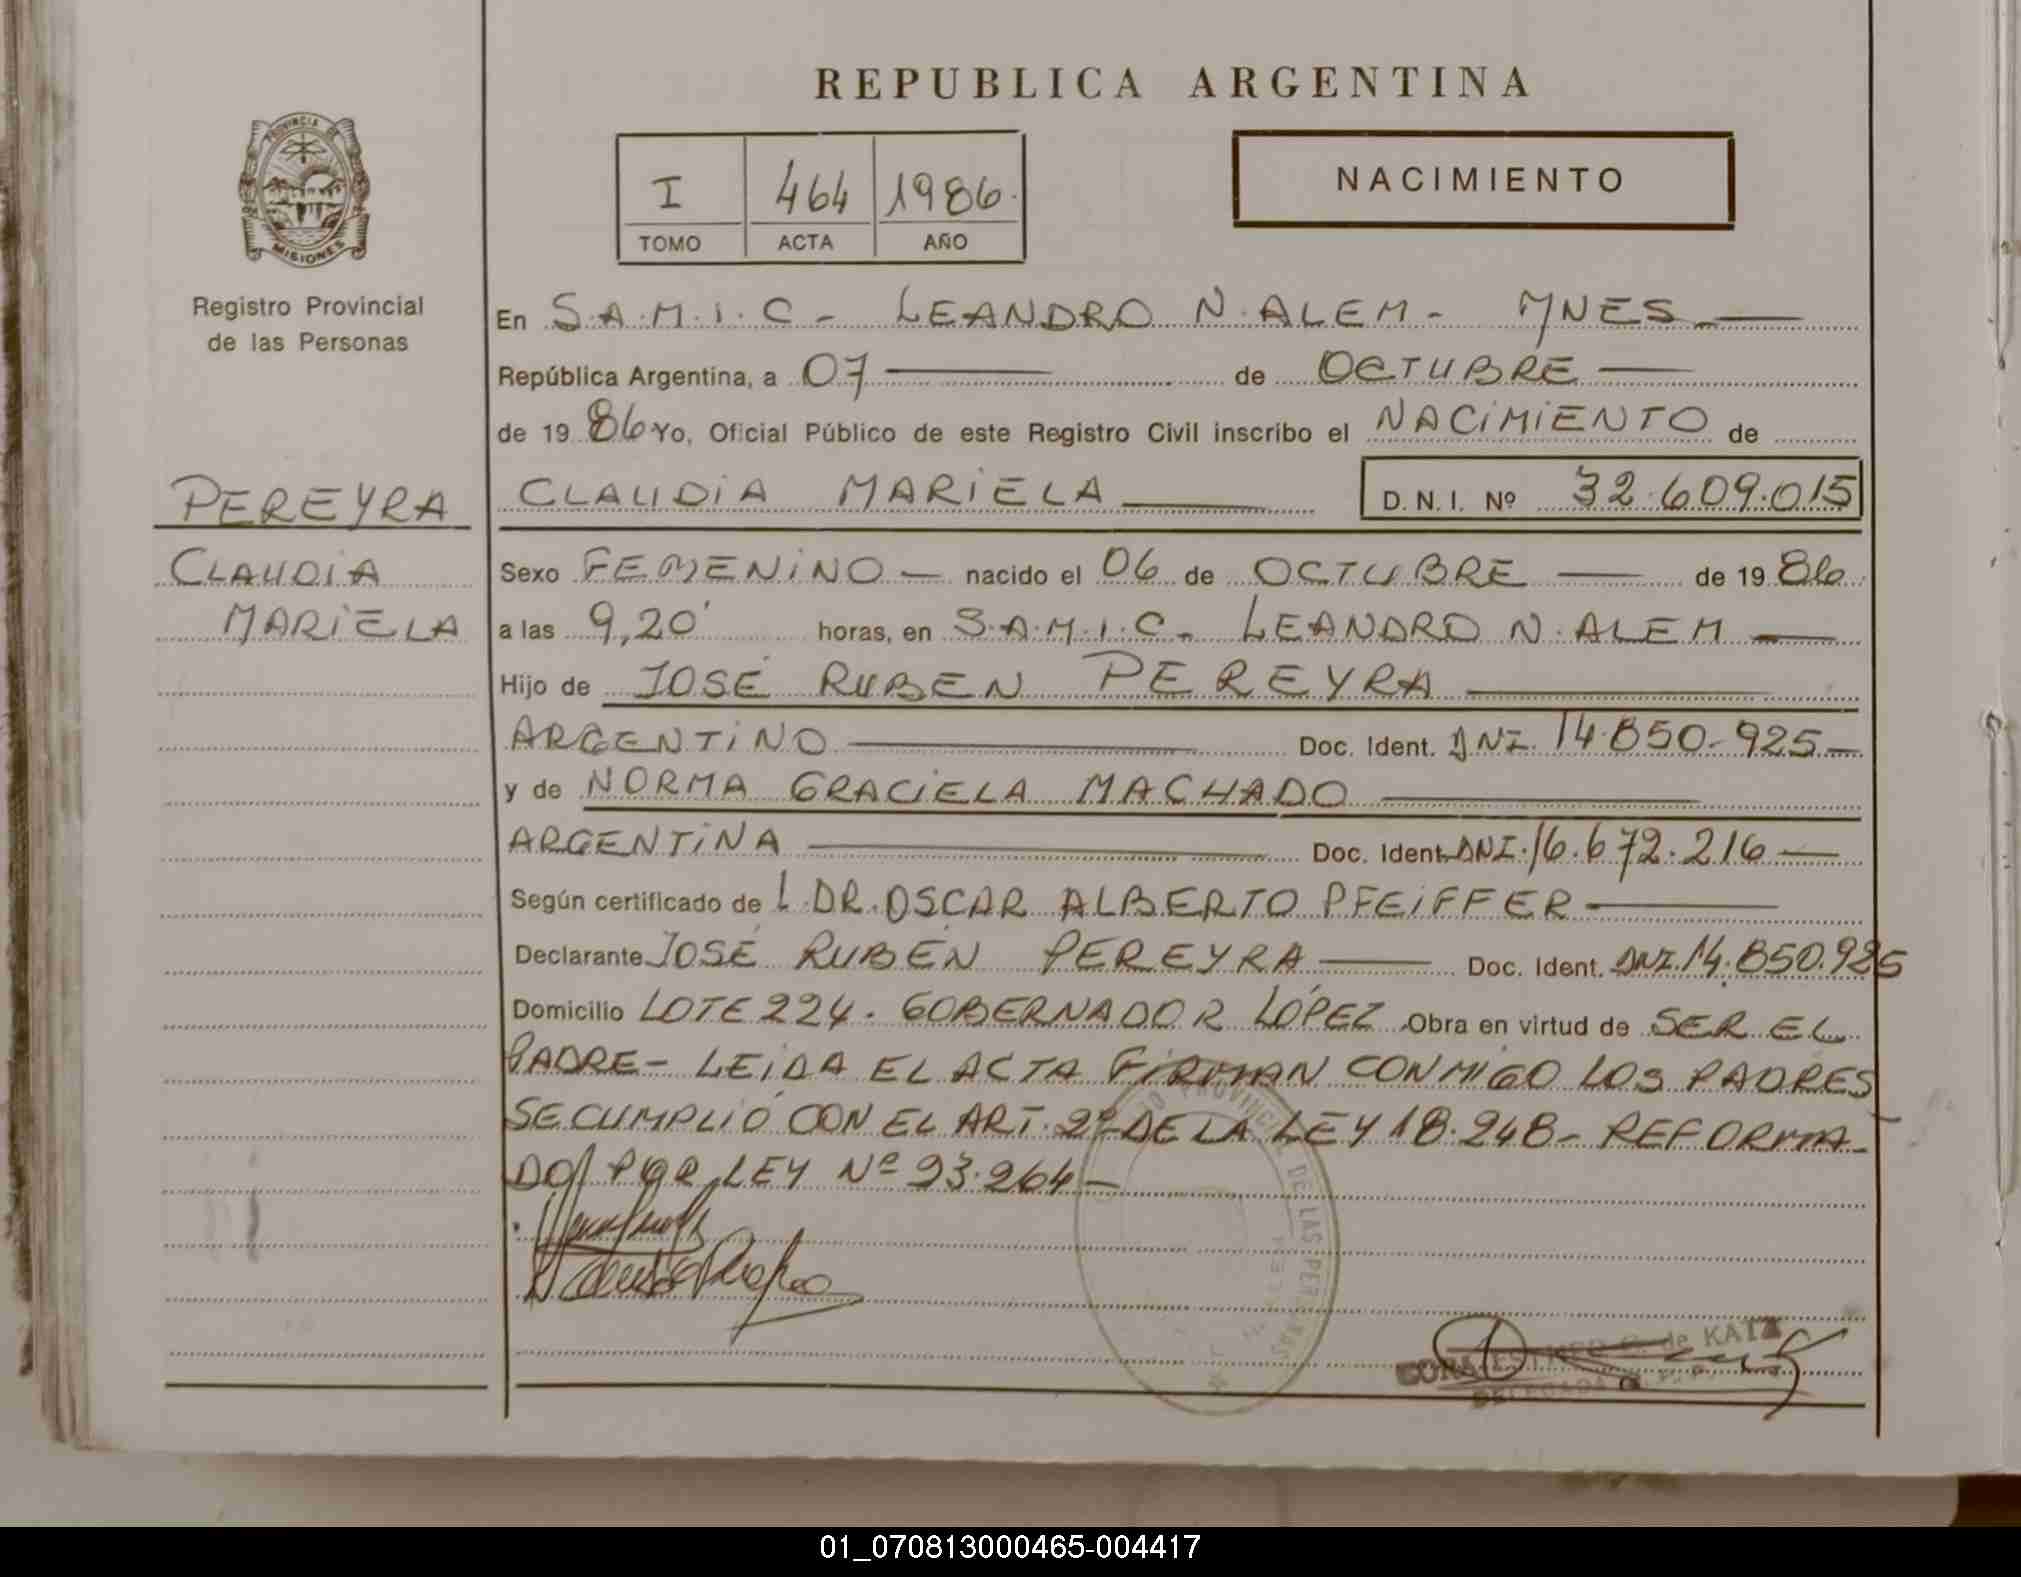 REPUBLICA ARGENTINA
PROVINCIA DE
MISIONES
Registro Provincial
de las Personas
I 464 1986.
TOMO ACTA AÑO
NACIMIENTO
En S.A.M.I.C - LEANDRO N. ALEM - MNES
República Argentina, a 07 de OCTUBRE
de 19 86 Yo, Oficial Público de este Registro Civil inscribo el NACIMIENTO de
PEREYRA
CLAUDIA
MARIELA
CLAUDIA MARIELA D. N. I. Nº 32.609.015
Sexo FEMENINO - nacido el 06 de OCTUBRE de 19 86
a las 9,20' horas, en S.A.M.I.C. LEANDRO N. ALEM
Hijo de JOSÉ RUBEN PEREYRA
ARGENTINO Doc. Ident. DNI. 14.850.925
y de NORMA GRACIELA MACHADO
ARGENTINA Doc. Ident. DNI. 16.672.216
Según certificado de L DR. OSCAR ALBERTO PFEIFFER
Declarante JOSÉ RUBÉN PEREYRA Doc. Ident. DNI. 14.850.925
Domicilio LOTE 224. GOBERNADOR LÓPEZ Obra en virtud de SER EL
PADRE - LEIDA EL ACTA FIRMAN CONMIGO LOS PADRES
SE CUMPLIÓ CON EL ART. 2º DE LA LEY 18.248 - REFORMA-
DO POR LEY Nº 23.264 -
PROVINCIAL DE LAS PERSONAS
de KATZ
DELEGADA
01_070813000465-004417